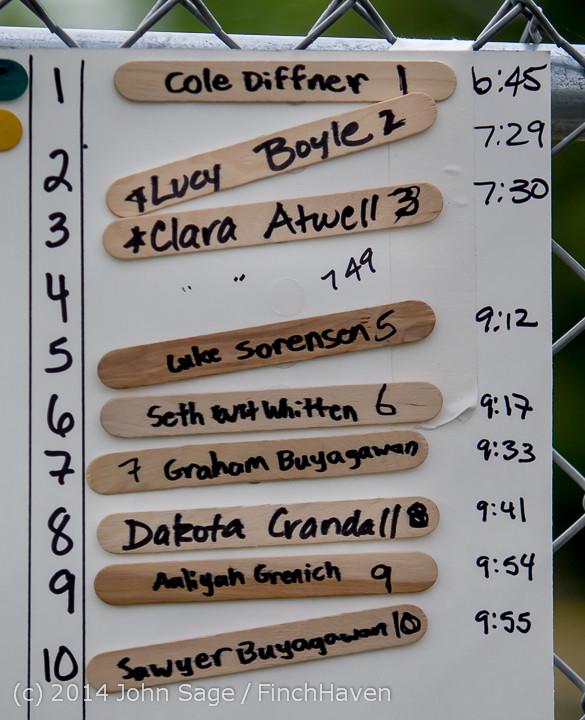 1 Cole Diffner 1 6:45
2 *Lucy Boyle 2 7:29
3 *Clara Atwell 3 7:30
4 " " 7 49
5 Luke Sorenson 5 9:12
6 Seth Whitten 6 9:17
7 7 Graham Buyagawan 9:33
8 Dakota Crandall 8 9:41
9 Aaliyah Grenich 9 9:54
10 Sawyer Buyagawan 10 9:55
(c) 2014 John Sage / FinchHaven